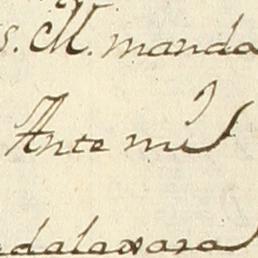 s. M. manda
Ante mi
adalaxara